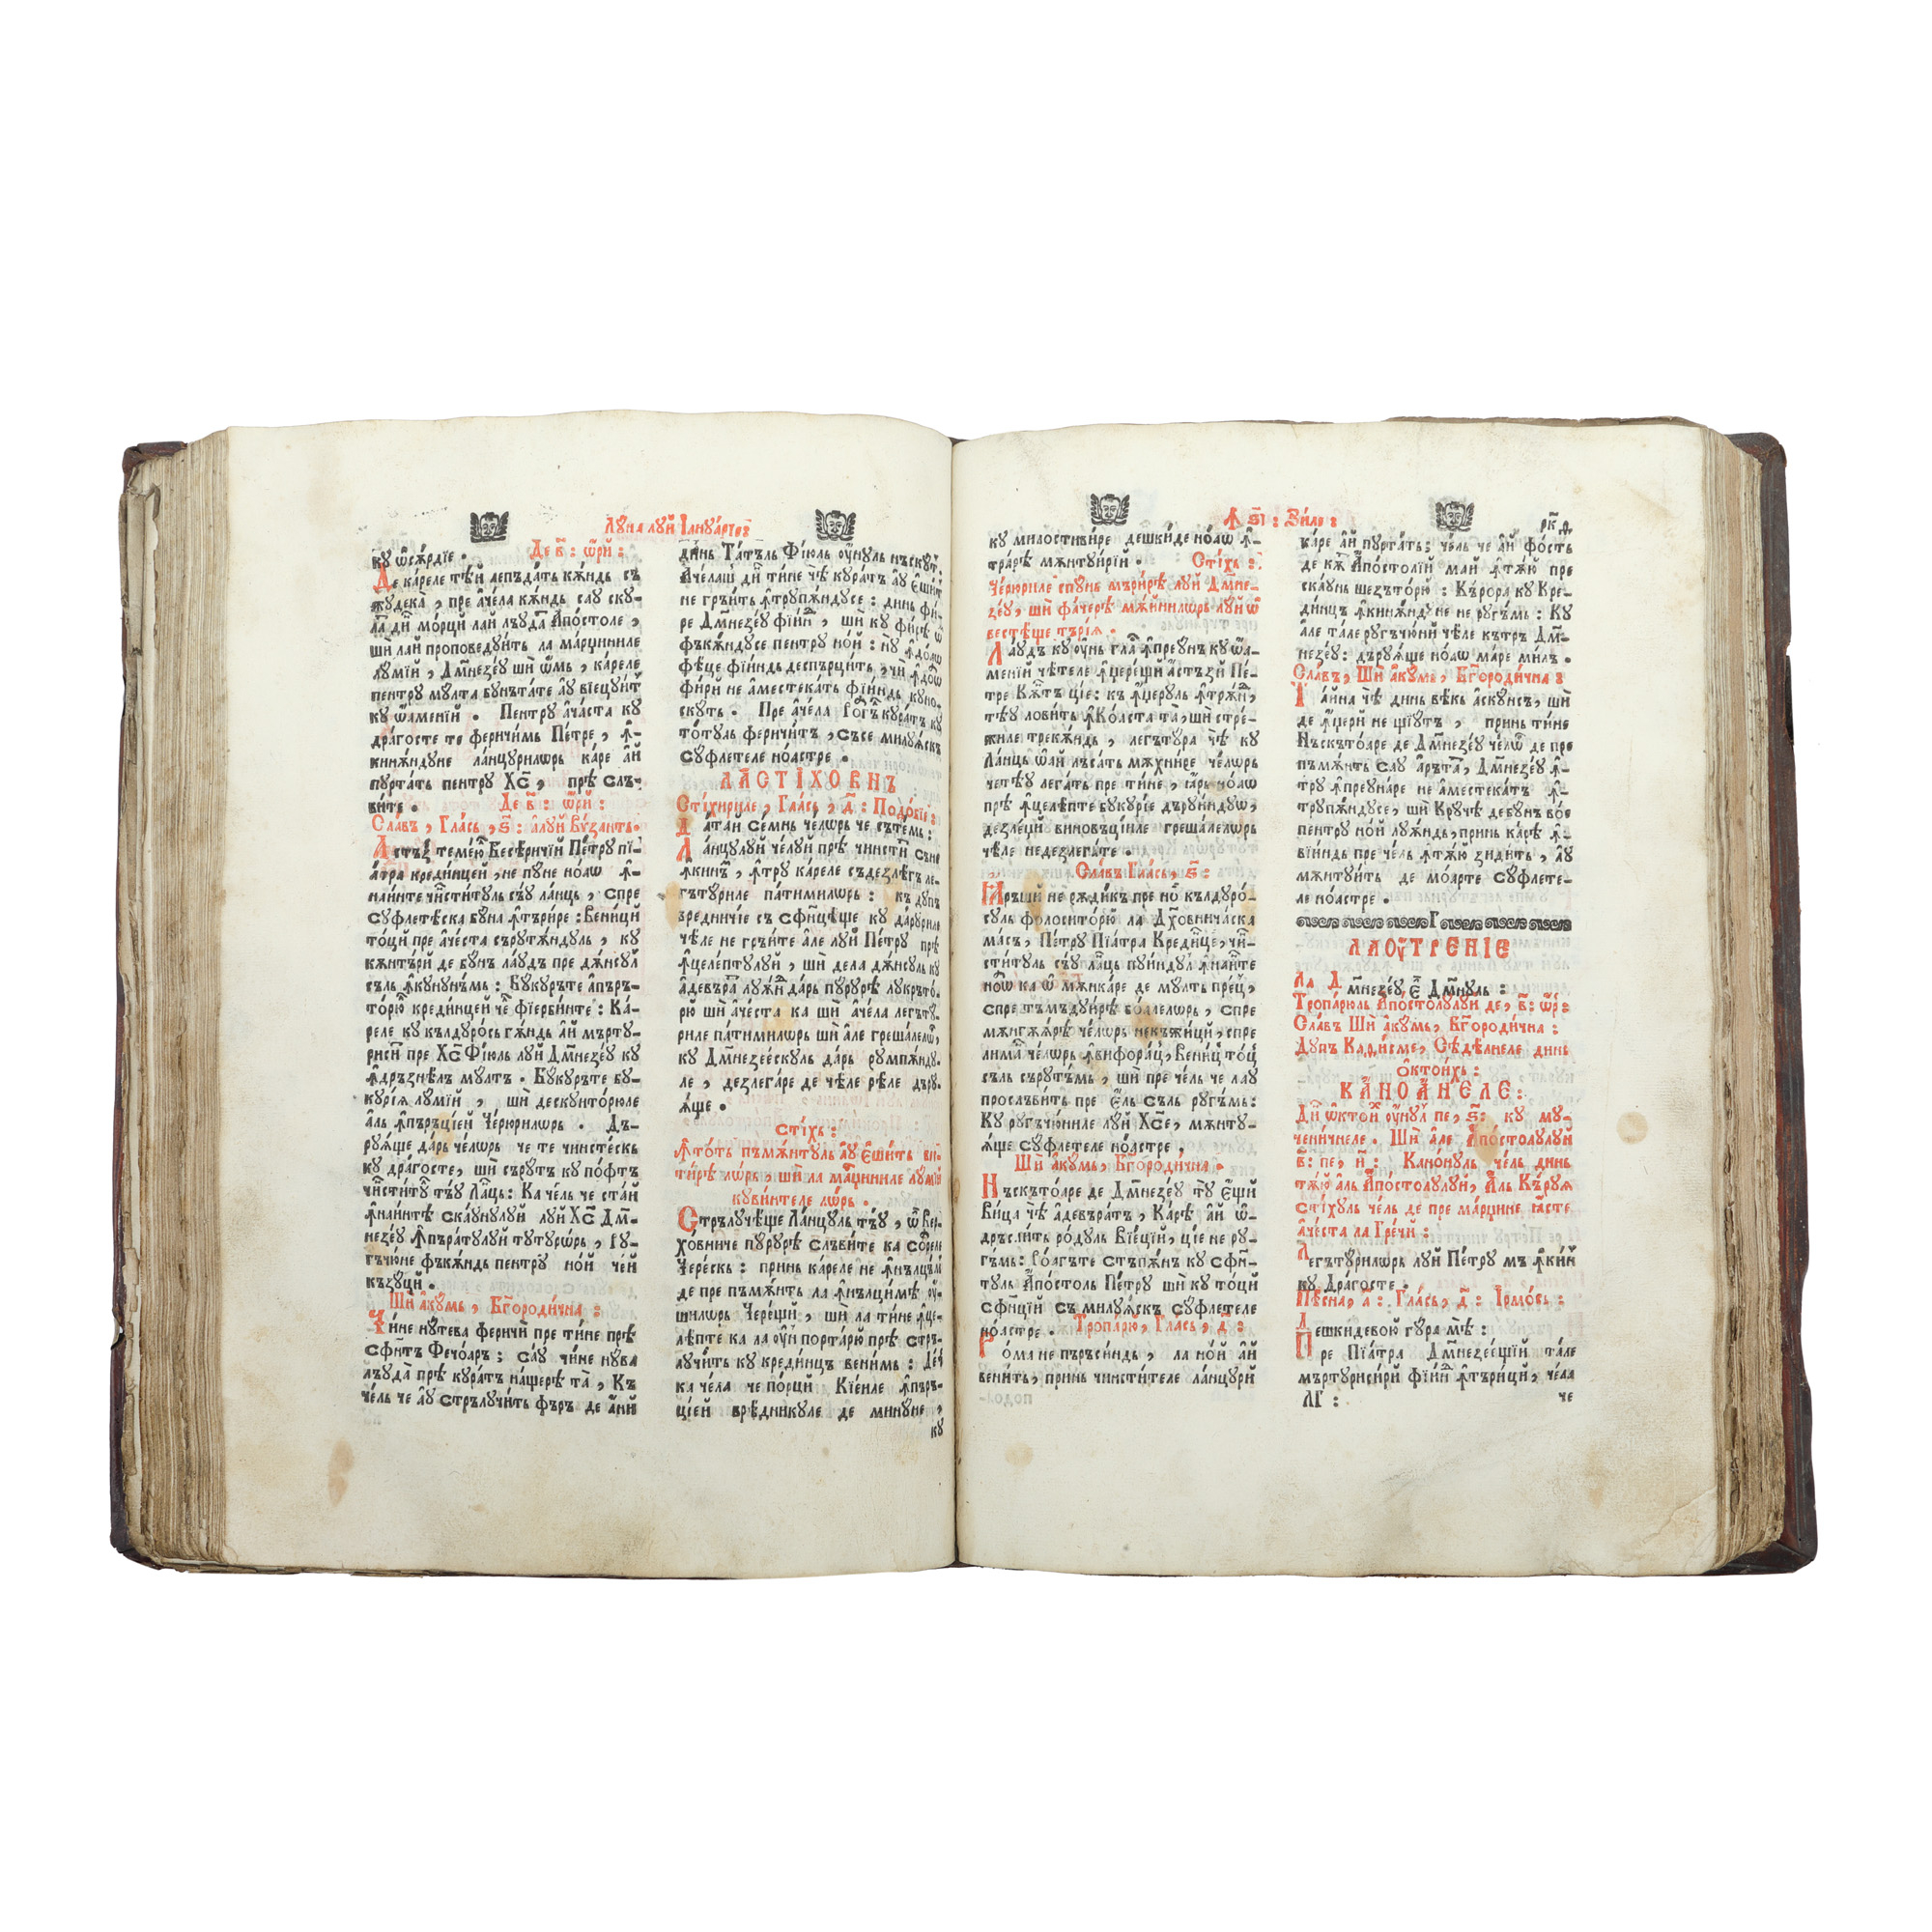 Лꙋна лꙋй Іанꙋаріе:
кꙋ ѡ҆сѫ́рдіе .   Де в҃: ѡ҆ри̑ :
Де ка́реле тѣи̑ лепъда́ть кѫ́ндь съ
жꙋдека̀ , пре а҆че́ла кѫ́ндь слꙋ скꙋ-
ла̑ ди̑ мо́рци лай лъꙋда̑ А҆по́столе ,
ши лай проповедꙋи́ть ла ма́рциниле
лꙋ́мїй , Дм҃незе́ꙋ ши ѡ҆́мь , ка́реле
пентрꙋ мꙋлта бꙋнъта́те а҆ꙋ вїецꙋи̑
кꙋ ѡ҆́аменїй . Пентрꙋ а҆ча́ста кꙋ
дра́госте те феричи́мь Пе́тре , ꙟ҆-
кинѫ́ндꙋне ла́нцꙋрилѡрь ка́ре а҆́й
пꙋрта́ть пентрꙋ Хс҃ , прѣ слъ-
ви́те .   Де в҃: ѡ҆ри̑ :
Сла́въ , Гла́сь , ѕ҃: а҆лꙋи̑ Вѵ́зантъ.
А҆стъ́з теме́ю Бесѣ́ричїи Пе́трꙋ пї-
а́тра кредїнцей , не пꙋне но́аѡ ꙟ҆-
наи́нте чи̑сти́тꙋль съ́ꙋ ла́нць , спре
сꙋфлетѣ́ска бꙋ́на ꙟ҆търи́ре : Вени́ци
то́ци пре а҆че́ста сърꙋтѫ́ндꙋль , кꙋ
кѫнтъ́ри̑ де бꙋнъ ла́ꙋдъ пре дѫ́нсꙋл̑
съль ꙟ҆кꙋнꙋнъ́мь : Бꙋкꙋръ́те а҆пъръ-
то́рю̑ креди́нцей че̑ фїерби́нте : Ка́-
реле кꙋ къ́лдꙋро́сь гѫ́ндь а҆́й мъртꙋ-
риси̑ пре Хс҃ Фі́юль лꙋй Дм҃незе́ꙋ кꙋ
ꙟ҆дръзнѣ́лъ мꙋ́лтъ . Бꙋкꙋръ́те бꙋ-
кꙋрі́ѧ лꙋ́мїй , ши дескꙋито́рюле
а҆́ль ꙟ҆пъръці́ей Че́рюрилѡрь . Дъ-
рꙋѧ́ще да́рь че́лѡрь че те чинсте́скь
кꙋ дра́госте, ши сърꙋ́тъ кꙋ по́фтъ
чи̑сти́тꙋ тъ́ꙋ Ла̑ць: Ка че́ль че ста́й
ꙟ҆наи́нтѣ ска́ꙋнꙋлꙋй лꙋй Хс҃ Дм҃-
незе́ꙋ ꙟ҆пъра́тꙋлꙋй тꙋтꙋрѡ́рь , рꙋ-
гъчю́не фъкѫ́ндь пентрꙋ но́й чей
къзꙋ́ци .
Ши а҆кꙋ́мь , Бг҃ороди́чна :
Чи́не нꙋтева феричи̑ пре ти́не прѣ
сфи̑тъ Фечо́аръ ; са́ꙋ чи́не нꙋва
лъꙋда̀ прѣ кꙋра́тъ на́щерѣ та̀ , Къ
че́ль че а҆ꙋ стрълꙋчи́ть фъръ де а҆́нй
дінь Та́тъль Фі́юль оу҆́нꙋль нъскꙋ́т̑
А҆че́лаш̑ ди̑ ти́не чѣ кꙋра́тъ а҆ꙋ є҆ши́т̑
не гръи́ть ꙟ҆трꙋпѫ́ндꙋсе : динь фи́-
ре Дм҃незе́ꙋ фїи̑ , ши кꙋ фи́рѣ ѡ̑
фъкѫ́ндꙋсе пентрꙋ но́й : нꙋ ꙟ҆до́аѡ
фе́це фїи́ндь деспърци́ть , чи̑ ꙟ҆дѡ̑
фи́рй не а҆местека́ть фїи́ндь кꙋно-
скꙋ́ть . Пре а҆че́ла Ро́гъ̑ кꙋра́тъ кꙋ
то́тꙋль феричи́тъ , съ́се милꙋѧ́скъ
сꙋ́флетеле ноа́стре .
ЛАСТІХОВНЪ
Стіхириле , Гла́сь , д҃: Подо́вїе :
Да́тай се́мнь че́лѡрь че съте́мь :
Ла́нцꙋлꙋй че́лꙋй прѣ чи́нсти̑ съне
ꙟ҆кин̑ , ꙟ҆трꙋ ка́реле съдезлѣ́гъ ле-
гътꙋриле па́тимилѡрь : къ дꙋпъ
вреднині́е съ сфи̑це́ще кꙋ да́рꙋриле
че́ле не гръи́те а҆́ле лꙋй Пе́трꙋ прѣ
ꙟ҆целе́птꙋлꙋй , ши дела дѫ́нсꙋль кꙋ
а҆девъра̑ лꙋѫ̑ да́рь пꙋ́рꙋрѣ лꙋкръто-
рю ши а҆че́ста ка ши а҆че́ла легътꙋ-
риле па́тимилѡрь ши а҆́ле греша́лелѡ̑,
кꙋ Дм҃незее́скꙋль да́рь рꙋмпѫ́ндꙋ-
ле , дезлега́ре де че́ле рѣ́ле дърꙋ-
ѧ́ще .
стіхь :
Ꙟ҆то́ть пъмѫ́нтꙋль а҆ꙋ є҆ши́ть ви-
ти́рѣ лѡ́рь , ши ла ма́рциниле лꙋ́мїй
кꙋви́нтеле лѡ́рь .
Стрълꙋче́ще Ла́нцꙋль тъ́ꙋ , ѡ̑ Вер-
хо́вниче пꙋ́рꙋрѣ слъви́те ка со́реле
Чере́скь : принь ка́реле не ꙟ҆нълцъ́й
де пре пъмѫ́нть ла ꙟ҆нълци́мѣ оу҆-
шилѡрь Чере́щи , ши ла ти́не ꙟ҆це-
лѣпте ка ла оу҆н̑ порта́рю прѣ стръ-
лꙋчи́ть кꙋ креди́нцъ вени́мь : Де́й
ка че́ла че по́рци Кі́еиле ꙟ҆пъръ-
ці́ей вре́дникꙋле де минꙋ́не ,
кꙋ
Ꙟ҆ ѕ҃і : Зи́ле :
рк҃д
кꙋ милости́вире дешки́де но́аѡ ꙟ҆-
тра́рѣ мѫнтꙋи́рїй .   Стіхь :
Че́рюриле спꙋ́нь мъри́рѣ лꙋй Дм҃не-
зе́ꙋ, ши фа́черѣ мѫ́йнилѡрь лꙋй ѡ̑
весте́ще търі́ѧ .
Ла́ꙋдъ кꙋ оу҆́нь гла̑ ꙟ҆преꙋ́нъ кꙋ ѡ҆а-
менїй че́теле ꙟ҆щері́щй а҆стъ́зй Пе́-
тре Кѫ̑тъ ці́е : къ ꙟ҆щерꙋль ꙟ҆трѫ̑,
тѣꙋ лови́ть ꙟ҆Ко́аста та̀ , ши стре́-
жиле трекѫ́ндь , легътꙋра чѣ кꙋ
Ла́нць ѡ҆ай лъса́ть мѫхни́ре че́лѡрь
чете́ꙋ лега́ть пре ти́не , га́рь но́аѡ
прѣ ꙟ҆целе́пте бꙋкꙋрі́е дърꙋи́ндꙋѡ,
дезле́щй виновъці́иле греша́лелѡрь
че́ле недезлега́те .
Сла́въ Гла́сь, ѕ҃:
І҆́ръшй не рѫди́къ пре но̑ къ́лдꙋро́-
сꙋль фолосито́рю ла Дх҃о́вничаска
ма́съ , Пе́трꙋ Піа́тра Креди́нце, чи̑-
сти́тꙋль съ́ꙋ ла̑ць пꙋи́ндꙋл̑ ꙟ҆наи̑те
но̑ѡ ка ѡ҆ мѫнка́ре де мꙋ́лть пре́ц̑ ,
спре тъмъдꙋи́рѣ бо́алелѡрь , спре
мѫнгѫѧ́рѣ че́лѡрь некъжи́ци , спре
лима̑ че́лѡрь ꙟ҆вифора́ц̑ , Вени́ц̑ то́ц̑
съль сърꙋтъ́мь , ши пре че́ль че ла́ꙋ
прослъви́ть пре є҆́ль съль рꙋгъ́мь :
Кꙋ рꙋгъчю́ниле лꙋй Хс҃е , мѫнтꙋ-
ѧ́ще сꙋ́флетеле ноа́стре .
Ши а҆кꙋ́мь , Бг҃ороди́чна .
Нъскъто́аре де Дм҃незе́ꙋ тꙋ є҆́щй
Ви́ца чѣ а҆девъра́тъ , Ка́рѣ а҆́й ѡ҆-
дръсли́ть ро́дꙋль Віе́цїй , ці́е не рꙋ-
гъ́мь : Роа́гъте стъпѫ́нъ кꙋ сфи̑-
тꙋль А҆по́столь Пе́трꙋ ши кꙋ то́ци
сфи̑цїй съ милꙋѧ́скъ сꙋ́флетеле
ноа́стре .   Тропа́рю , Гла́сь , д҃ :
Ро́ма не пъръси́ндь , ла но́й а҆́й
вени́ть , принь чинсти́теле ла́нцꙋрй
ка́ре а҆й пꙋрта́ть ; че́ль че а҆́й фо́сть
де кѫ̑ А҆по́столїй май ꙟ҆тѫ́ю пре
ска́ꙋнь шезъто́рю : Къ́рора кꙋ Кре-
ди́нцъ ꙟ҆кинѫ́ндꙋне не рꙋгъ́мь : Кꙋ
а҆́ле та́ле рꙋгъчю́нй че́ле кътръ Дм҃-
незе́ꙋ : дърꙋѧ́ще но́аѡ ма́ре ми́лъ .
Сла́въ , Ши а҆кꙋ́мь , Бг҃ороди́чна :
Та́йна чѣ динь ве́кь а҆скꙋ́нсъ , ши
де ꙟ҆́щерй не щїꙋ́тъ , принь ти́не
Нъскъто́аре де Дм҃незе́ꙋ че́лѡ̑ де пре
пъмѫ́нть сꙋ а҆рътта̑ , Дм҃незе́ꙋ ꙟ҆-
трꙋ ꙟ҆преꙋна́ре не а҆местека́тъ ꙟ҆-
трꙋпѫ́ндꙋсе , ши Крꙋ́чѣ де бꙋ́нъ во́е
пентрꙋ но́й лꙋѫ́ндь, принь ка́рѣ ꙟ҆-
вїи́ндь пре че́ль ꙟ҆тѫ́ю зиди́ть , а҆ꙋ
мѫнтꙋи́ть де мо́арте сꙋ́флете-
ле ноа́стре .
ЛАОУТРЕНІЕ
Ла Дм҃незе́ꙋ є҆̑ Дм҃нꙋль :
Тропа́рюль А҆по́столꙋлꙋй де , в҃: ѡ҆р̑:
Сла́въ Ши а҆кꙋ́мь , Бг҃ороди́чна :
Дꙋпъ Каѳі́сме , Сѣдѣлнеле динь
ѻ҆ктои́хь :
КАНОАНЕЛЕ :
Ди̑ ѡ҆ктои̑ оу҆́нꙋл̑ пе , ѕ҃: кꙋ мꙋ-
чени́чиле . Ши а҆́ле А҆по́столꙋлꙋй
в҃: пе , и҃ : Кано́нꙋль че́ль динь
тѫ́ю а҆ль А҆по́столꙋлꙋй , А҆ль Кърꙋѧ
сті́хꙋль че́ль де пре ма́рцине ꙗ҆сте
а҆че́ста ла Гре́чй :
Легътꙋ́рилѡрь лꙋй Пе́трꙋ мъ ꙟ҆ки́й
кꙋ Дра́госте .
Пѣснь, а҃ : Гла́сь , д҃ : І҆рмо́сь :
Дешкидевою̀ гꙋ́ра мѣ̀ :
Пре Піа́тра Дм҃незее́щїй та́ле
мъртꙋриси́рй фїи̑ ꙟ҆търи́ци , че́ла
ЛГ :   че